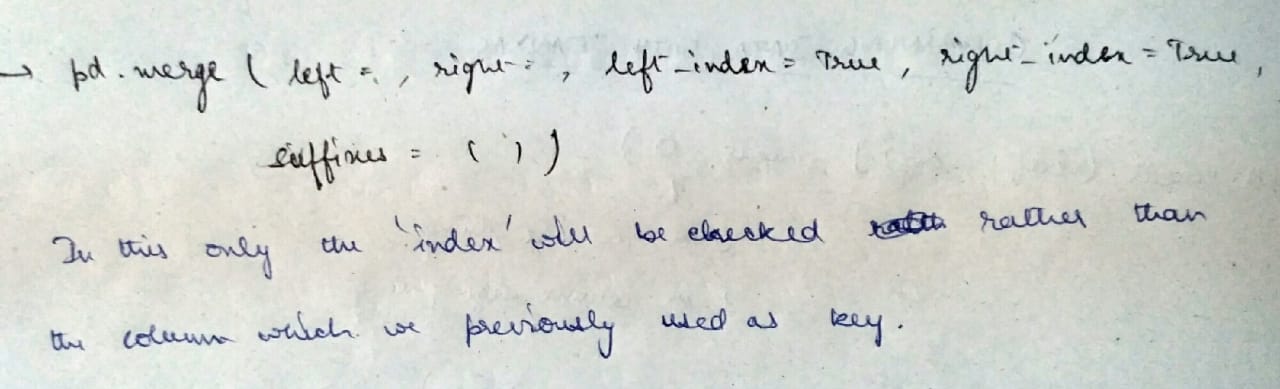 → pd.merge ( left = , right = , left_index = True , right_index = True ,
suffixes = ( , )
In this only the 'index' will be checked rather than
the column which we previously used as key.